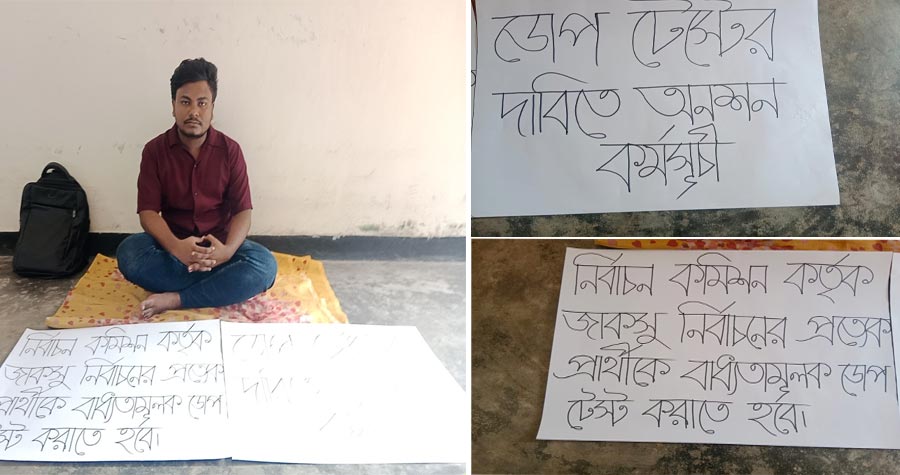 নির্বাচন কমিশন কর্তৃক
জাকসু নির্বাচনের প্রত্যেক
প্রার্থীকে বাধ্যতামূলক ডোপ
টেস্ট করাতে হবে।
ডোপ টেস্টের
দাবিতে অনশন
কর্মসূচী
নির্বাচন কমিশন কর্তৃক
জাকসু নির্বাচনের প্রত্যেক
প্রার্থীকে বাধ্যতামূলক ডোপ
টেস্ট করাতে হবে।